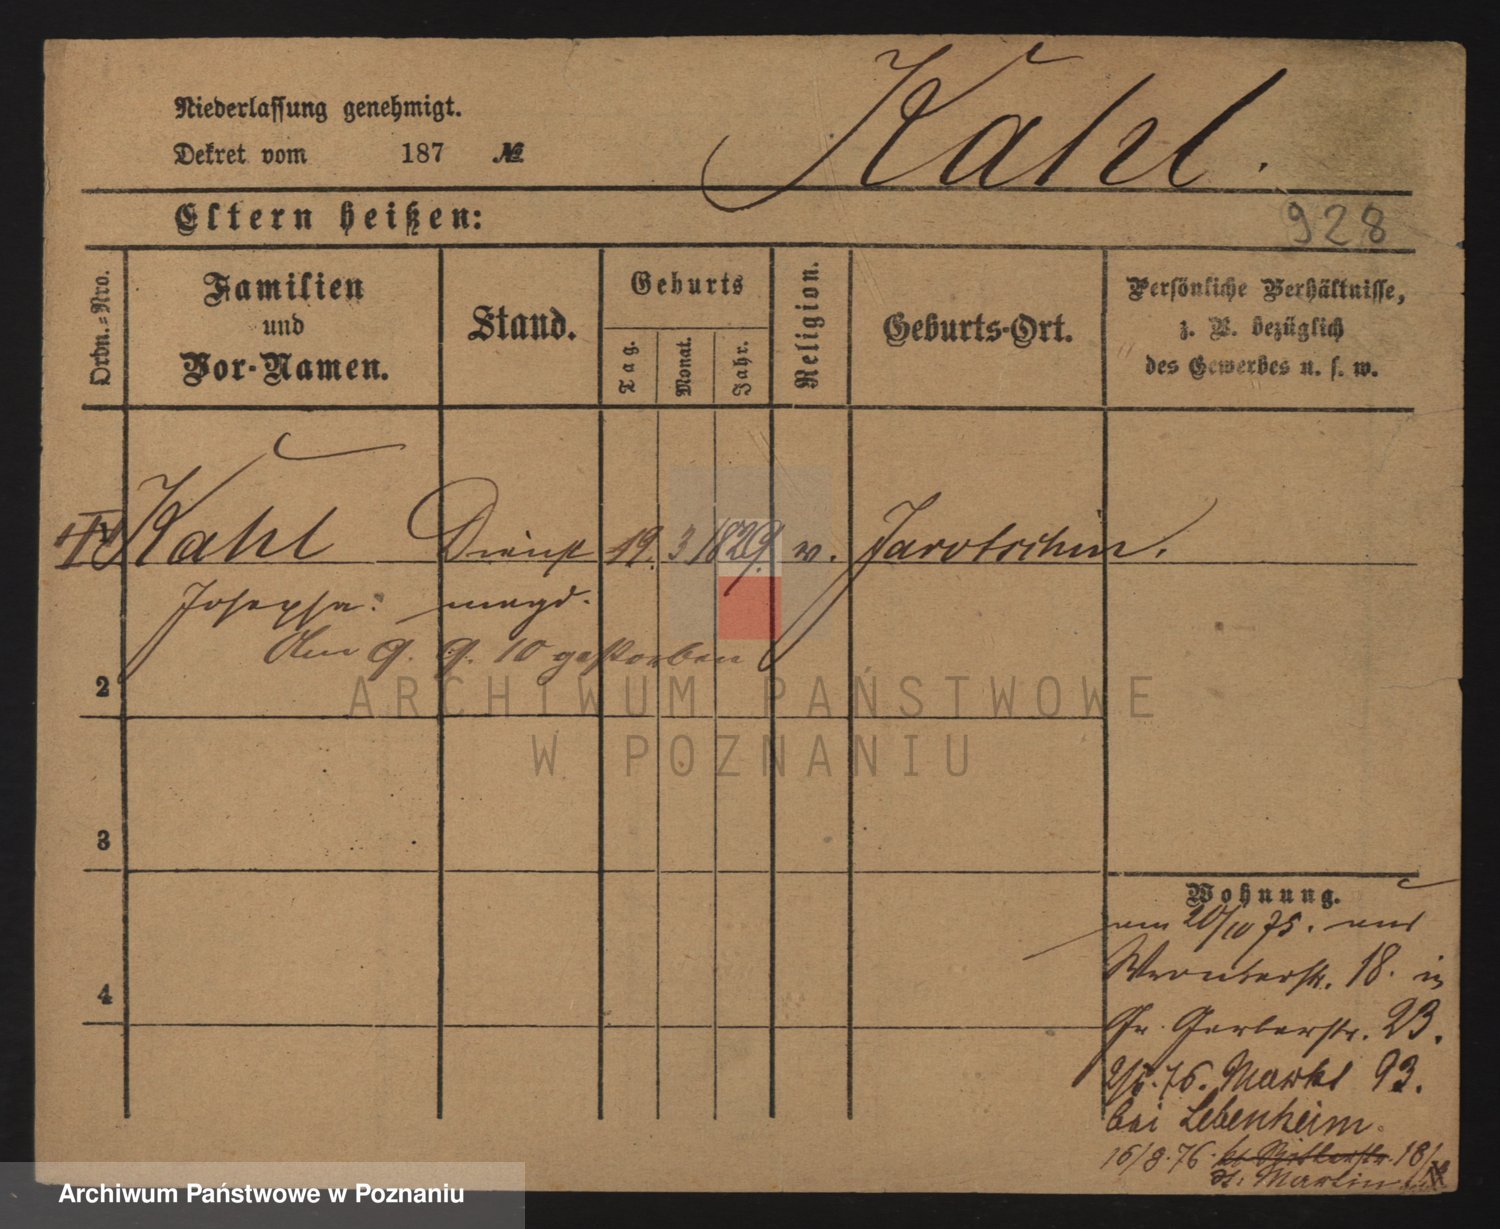 Niederlassung genehmigt.
Dekret vom 187 №
Kahl.
Eltern heißen:
928
Ordn.-Nro.
Familien
und
Vor-Namen.
Stand.
Geburts
Tag.
Monat.
Jahr.
Religion.
Geburts-Ort.
Persönliche Verhältnisse,
z. B. bezüglich
des Gewerbes u. s. w.
Kahl Dienst 19. 3 1829. Jarotschin.
Josepha. magd.
Am 9. 9. 10 gestorben
2
3
4
Wohnung.
am 20/10 75. aus
Wronkerstr. 18. in
Gr. Gerberstr. 23.
76. Markt 93.
bei Lebenheim.
16/8.76. 18/
St. Martin
ARCHIWUM PAŃSTWOWE
W POZNANIU
Archiwum Państwowe w Poznaniu